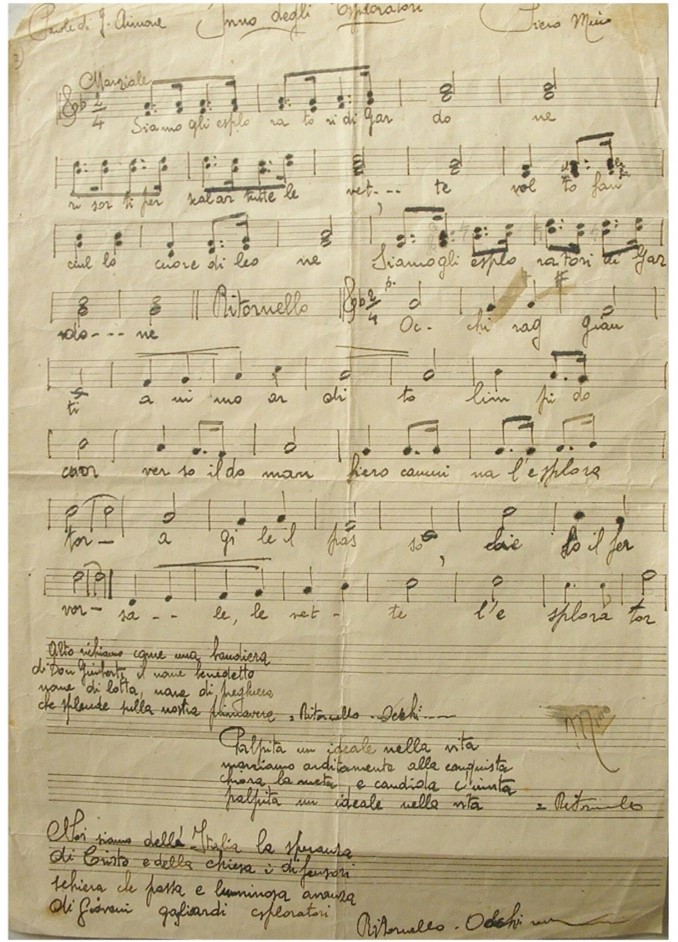 Parole di G. Aimone Inno degli Esploratori Piero Miró
Marziale
2/4 Siamo gli esplo ra to ri di Gar do ne
ri sor ti per scalar tutte le vet--- te vol to fan
ciul lo cuore di leo ne Siamo gli esplo ratori di Gar
do--- ne Ritornello 2/4 p. Oc- chi rag gian
ti a ni mo ar di to lim pi do
cuor ver so il do man fiero cammi na l'esplora
tor- a gi le il pas so cuo il fer
vor- sa-- le, le vet- te l'e splora tor
Alto richiamo come una bandiera
di Don il nome benedetto
nome di lotta, nome di preghiera
che splende sulla nostra primavera = Ritornello - Occhi
Palpita un ideale nella vita
marciamo arditamente alla conquista
chiara la meta e candida c'invita
palpita un ideale nella vita = Ritornello
Noi siamo della Italia la speranza
di Cristo e della chiesa i difensori
schiera che passa e luminosa avanza
di Giovani gagliardi esploratori
Ritornello - Occhi